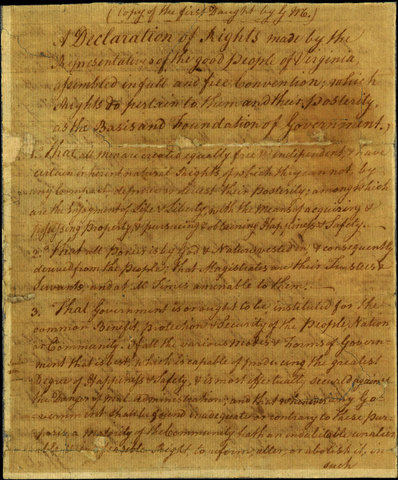 (Copy of the first Daught by GM.)
A Declaration of Rights made by the
Representatives of the good People of Virginia
assembled in full and free Convention; which
Rights do pertain to them and their Posterity,
as the Basis and Foundation of Government.
1. That all men are created equally free & independent, & have
certain inherent natural Rights, of which they cannot, by
any Compact, deprive or divest their Posterity; among which
are the Enjoyment of Life & Liberty, with the Means of acquiring &
possessing Property, & pursuing & obtaining Happiness & Safety.
2. That all Power is by God & Nature vested in & consequently
derived from the People; that Magistrates are their Trustees &
Servants, and at all Times amenable to them.
3. That Government is or ought to be instituted for the
common Benefit, protection & Security of the People, Nation
or Community. Of all the various modes & Forms of Govern-
ment that is best, which is capable of producing the greatest
Degree of Happiness & Safety, & is most effectually secured against
the Danger of mal-administration; and that whenever any Go-
vernment shall be found inadequate or contrary to these pur-
poses, a majority of the Community hath an indubitable unalien-
able & Right to reform, alter or abolish it, in
such